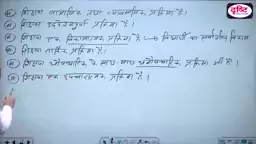 दृष्टि
शिक्षण सामाजिक तथा व्यावसायिक प्रक्रिया है।
शिक्षण उद्देश्यपूर्ण प्रक्रिया है।
शिक्षण एक विकासात्मक प्रक्रिया है। → विद्यार्थी का सर्वांगीण विकास
शिक्षण तार्किक प्रक्रिया है।
शिक्षण औपचारिक के साथ साथ अनौपचारिक प्रक्रिया भी है।
शिक्षण एक उपचारात्मक प्रक्रिया है।